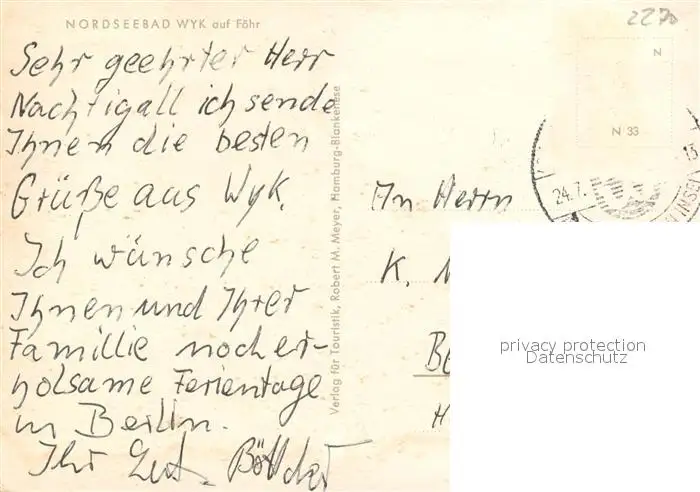 NORDSEEBAD WYK auf Föhr
2270
Sehr geehrter Herr
Nachtigall ich sende
Ihnen die besten
Grüße aus Wyk.
Ich wünsche
Ihnen und Ihrer
Famillie noch er-
holsame Ferientage
in Berlin.
Ihr
Verlag für Touristik, Robert M. Meyer, Hamburg-Blankenese
N
N 33
24.7.
13
An Herrn
K. N
BE
H
privacy protection
Datenschutz